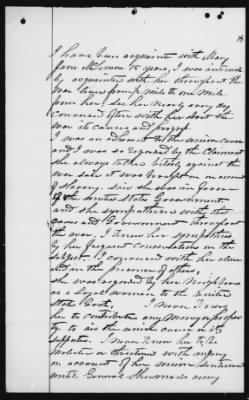 I have been acquainted with Mary
Jane McLemon 10 years, I was intimately
acquainted with her throughout the
War lived from ½ mile to one mile
from her, saw her nearly every day
conversed often with her about the
war its causes and progress.
I was an adherent to the union cause
and I was so regarded by the Claimant
she always talked bitterly against the
war said it was brought on on account
of slavery. said she was in favor
of the United States Government
and she sympathised with the
cause and Government throughout
the war, I knew her sympathies
by her frequent conversations on the
subject. I conversed with her alone
and in the presence of others,
she was regarded by her Neighbors
as a loyal woman to the United
States Govt, I never knew
her to contribute any money or property
to aid the union cause or its
supporters. I never knew her to be
molested or threatened with injury
on account of her union sentiments
until General Shermans army